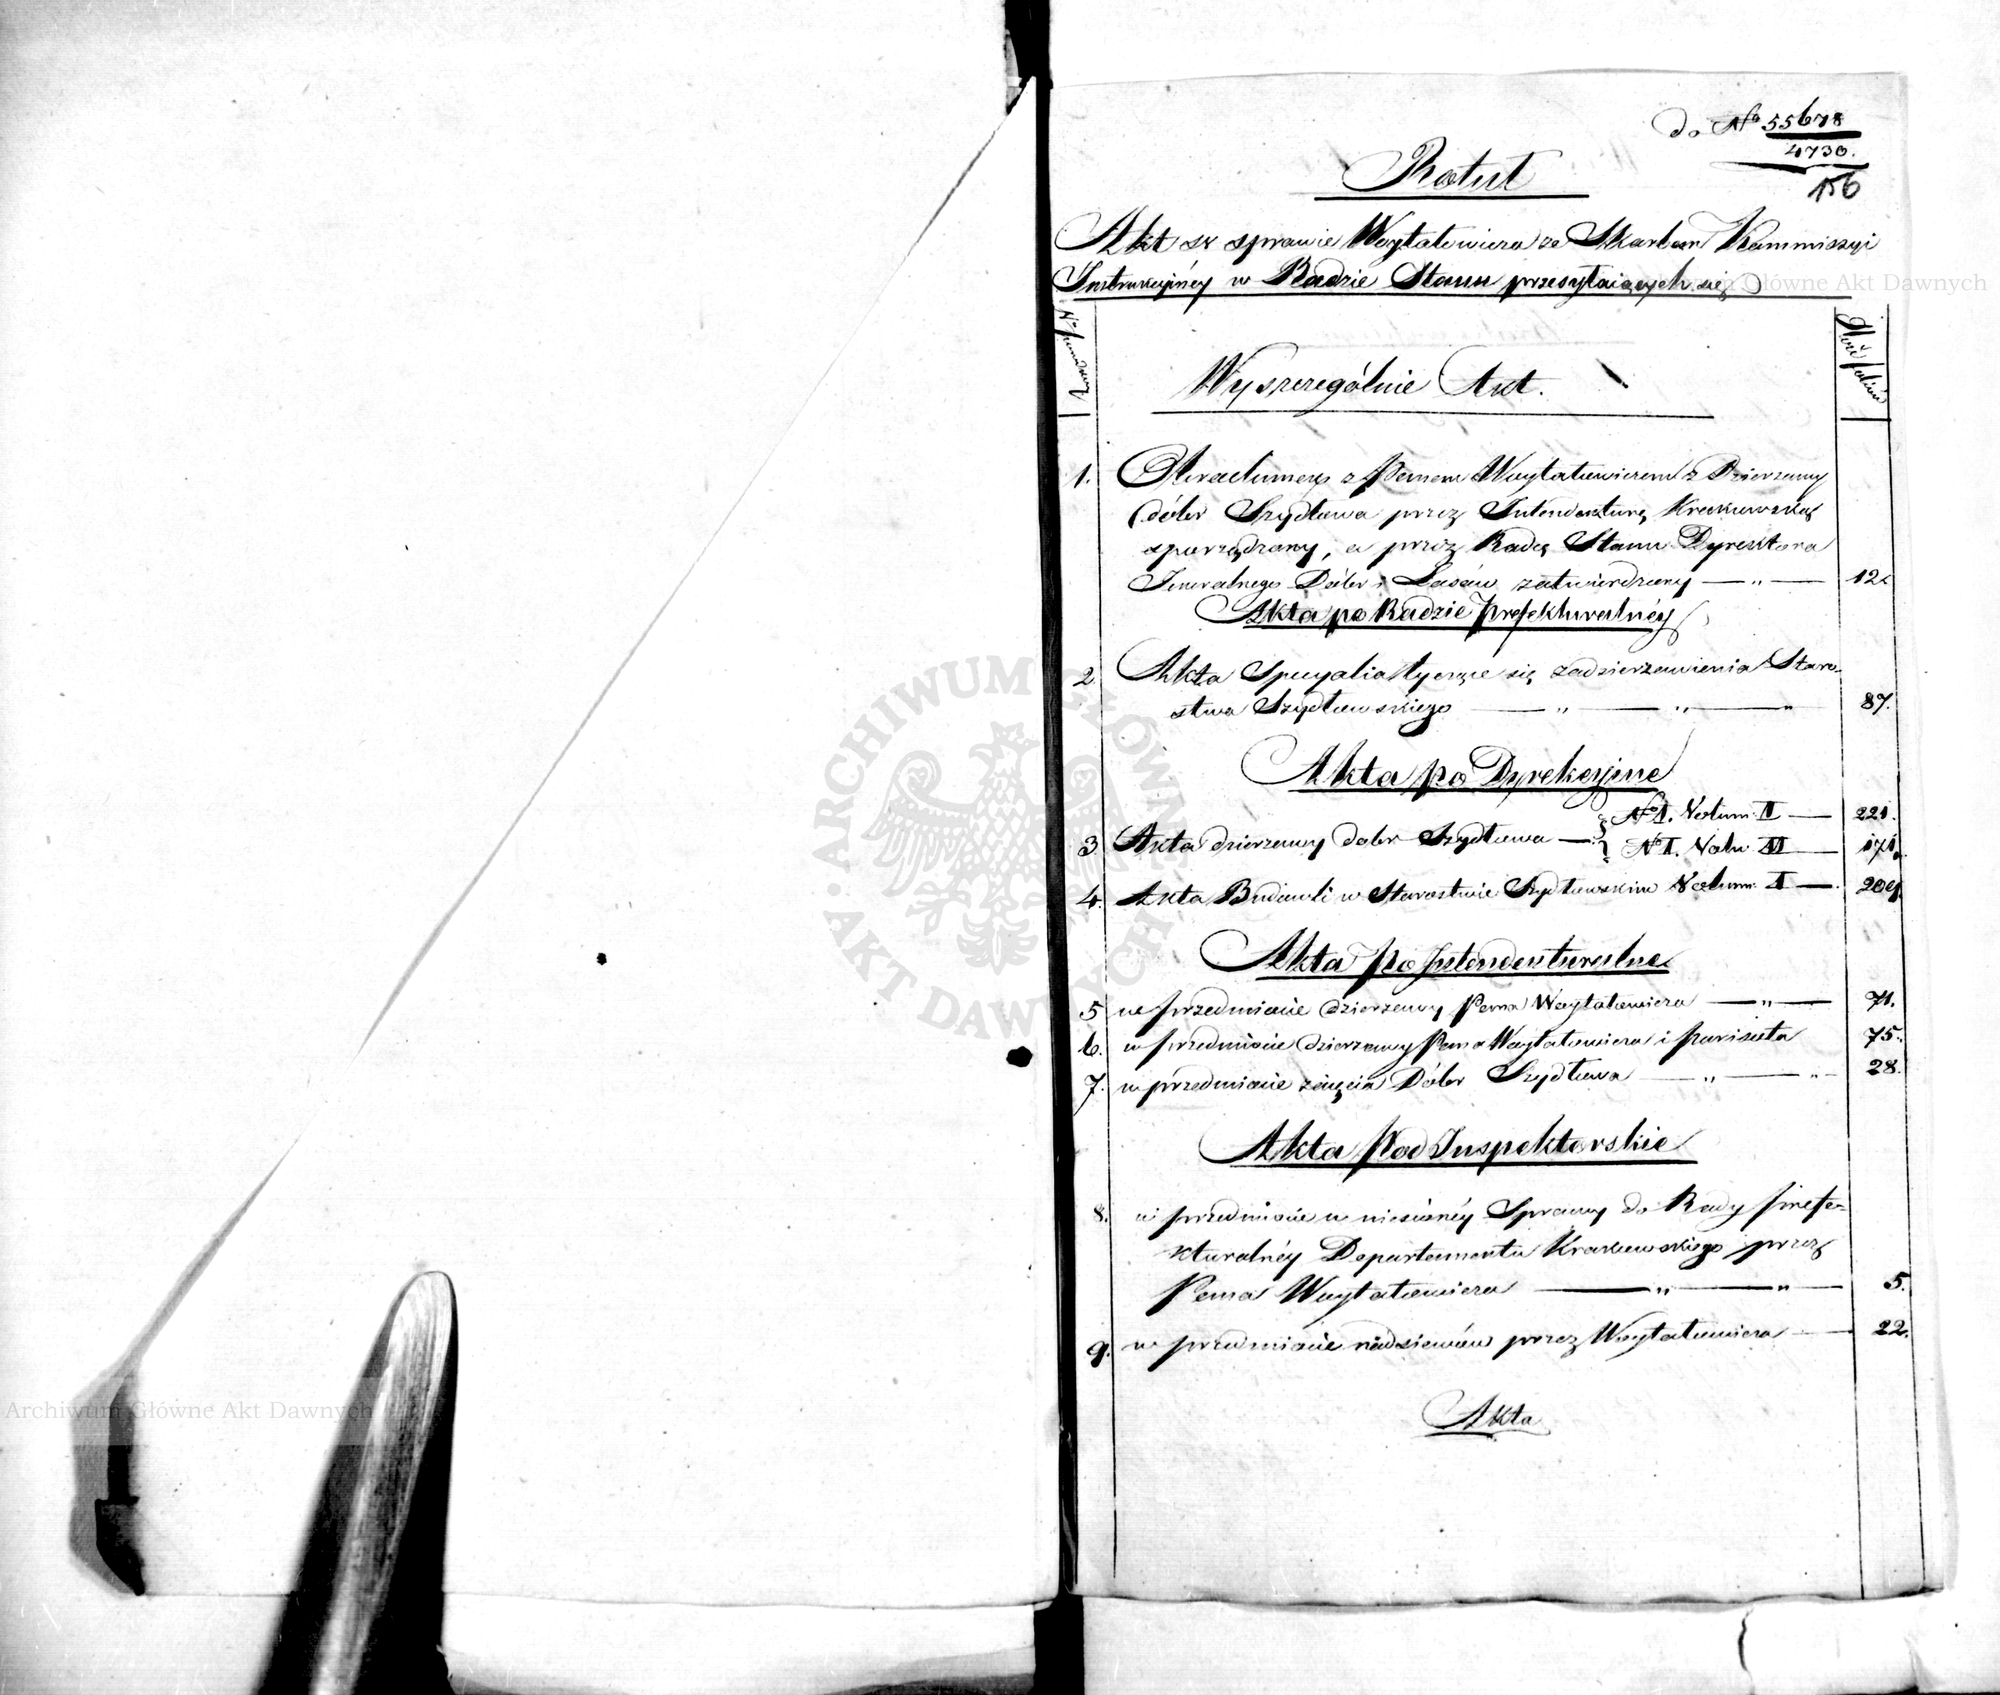 do No 55678
4730.
156
Rotuł
Akt w sprawie Woytatowicza ze Skarbem Kommissyi
Instrukcyinéy w Radzie Stanu przesyłaiących się
No
Ilość foliów
Wyszczególnie Akt.
1. z Panem Woytatowiczem z Dzierzawy
dóbr Szydłowa przez Intendenturę Krakowską
sporządzony, a przez Radcę Stanu Dyrektora
Jeneralnego Dóbr i Lasów zatwierdzony — „ — 12.
Akta po Radzie Prefekturalnéy
2. Akta Specyalia tyczące się zadzierzawienia Staro-
stwa Szydłowskiego — „ — „ — „ 87.
Akta po Dyrekcyine
No I. Volum: II — 221.
3. Akta dzierzawy dobr Szydłowa — No I. Volu: III — 171.
4. Akta Budowli w Starostwie Szydłowskim Volum: I — 209.
Akta po Intendenturalne
5 w przedmiocie dzierzawy Pana Woytatowicza — „ — 71.
6. w przedmiocie dzierzawy Pana Woytatowicza i Parisieta 75.
7. w przedmiocie zaięcia Dóbr Szydłowa — „ — „ - 28.
Akta Pod Inspektorskie
8. w przedmiocie w niesionéy Sprawy do Rady prefe-
kturalnéy Departamentu Krakowskiego przez
Pana Woytatowicza — „ — „ — 5.
9. w przedmiocie przez Woytatowicza — 22.
Akta
ARCHIWUM GŁÓWNE AKT DAWNYCH
Archiwum Główne Akt Dawnych
Archiwum Główne Akt Dawnych